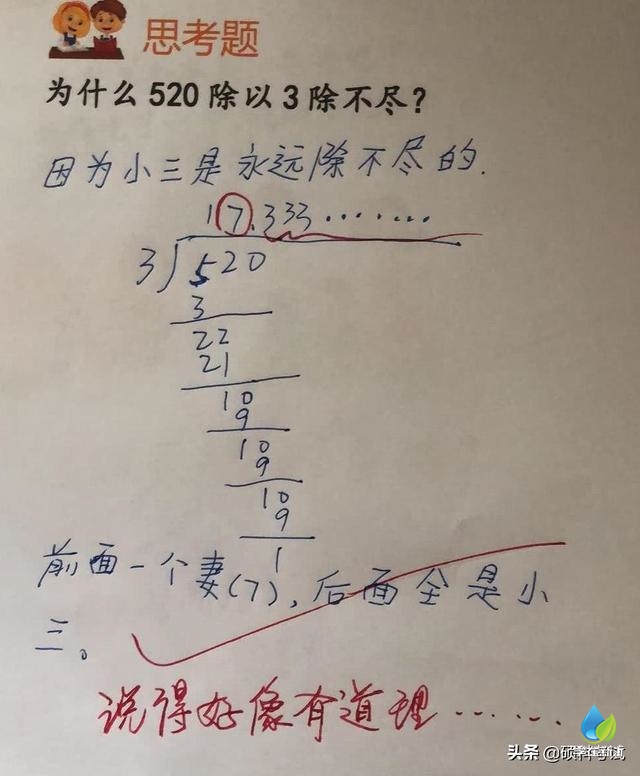 思考题
为什么 520 除以 3 除不尽?
因为小三是永远除不尽的.
17.333.......
3 520
3
22
21
10
9
10
9
10
9
1
前面一个妻(7),后面全是小
三。
说得好像有道理......
头条 @硕科考试